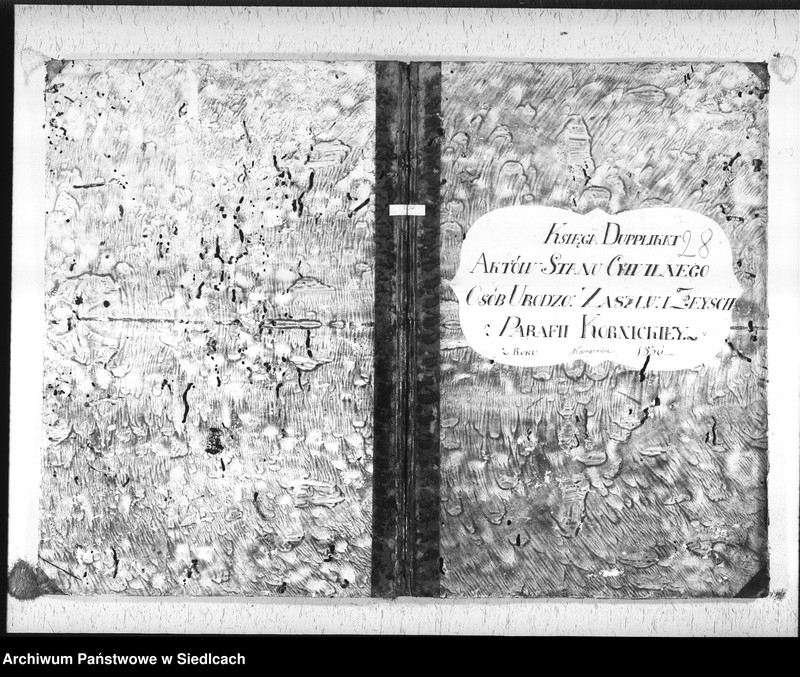 Księga Dupplikat 28
Aktów Stanu Cywilnego
Osób Urodzo: Zaszlu: i Zeysch
z Parafii Kornickiey
z Roku 1836
Archiwum Państwowe w Siedlcach